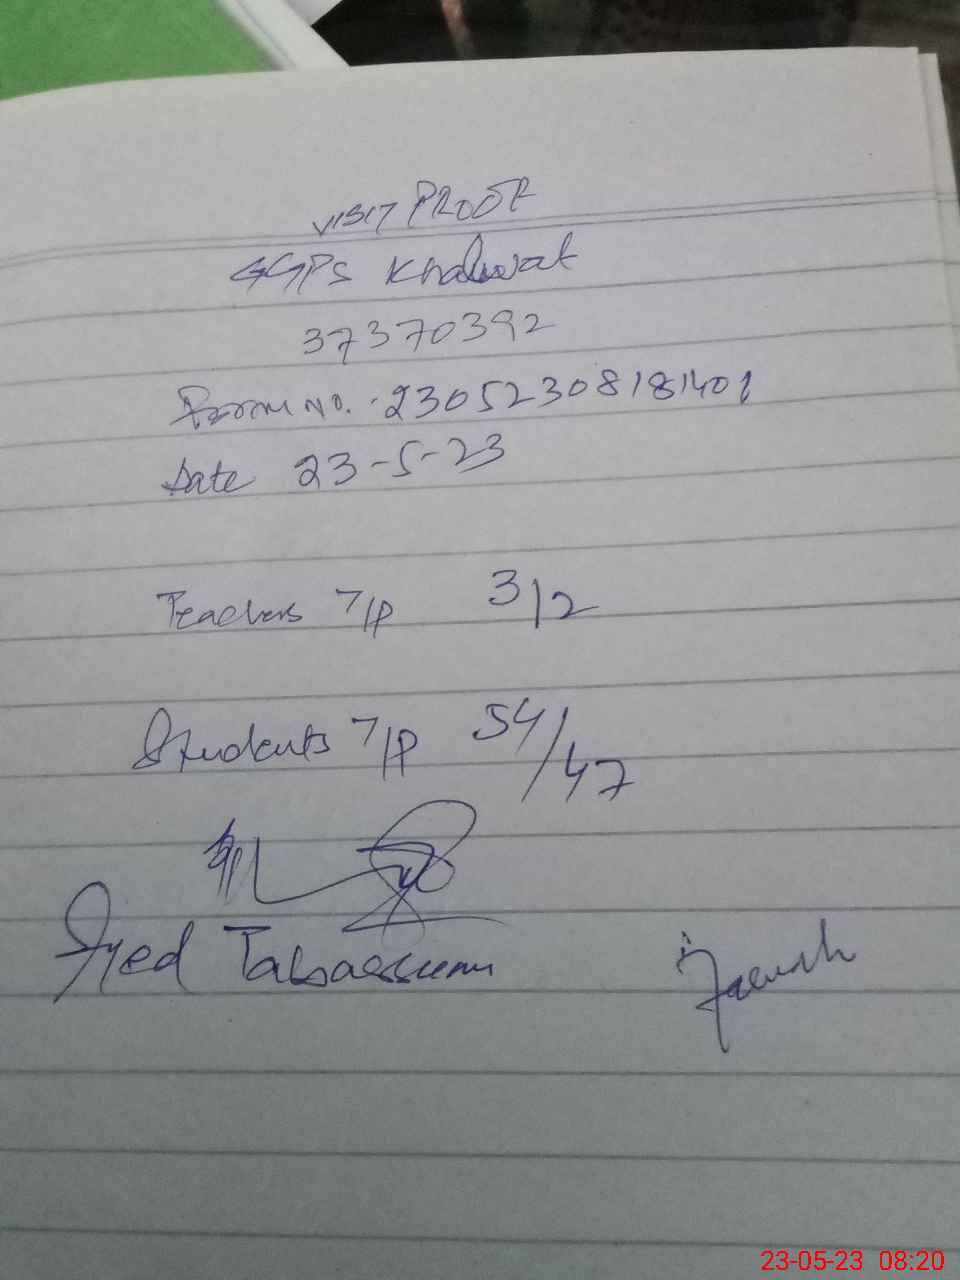 VISIT PROOF
GGPS Khalwat
37370392
Form No. 23052308181401
Date 23-5-23
Teachers T/P 3/2
Students T/P 54/47
Syed Tabassum
23-05-23 08:20